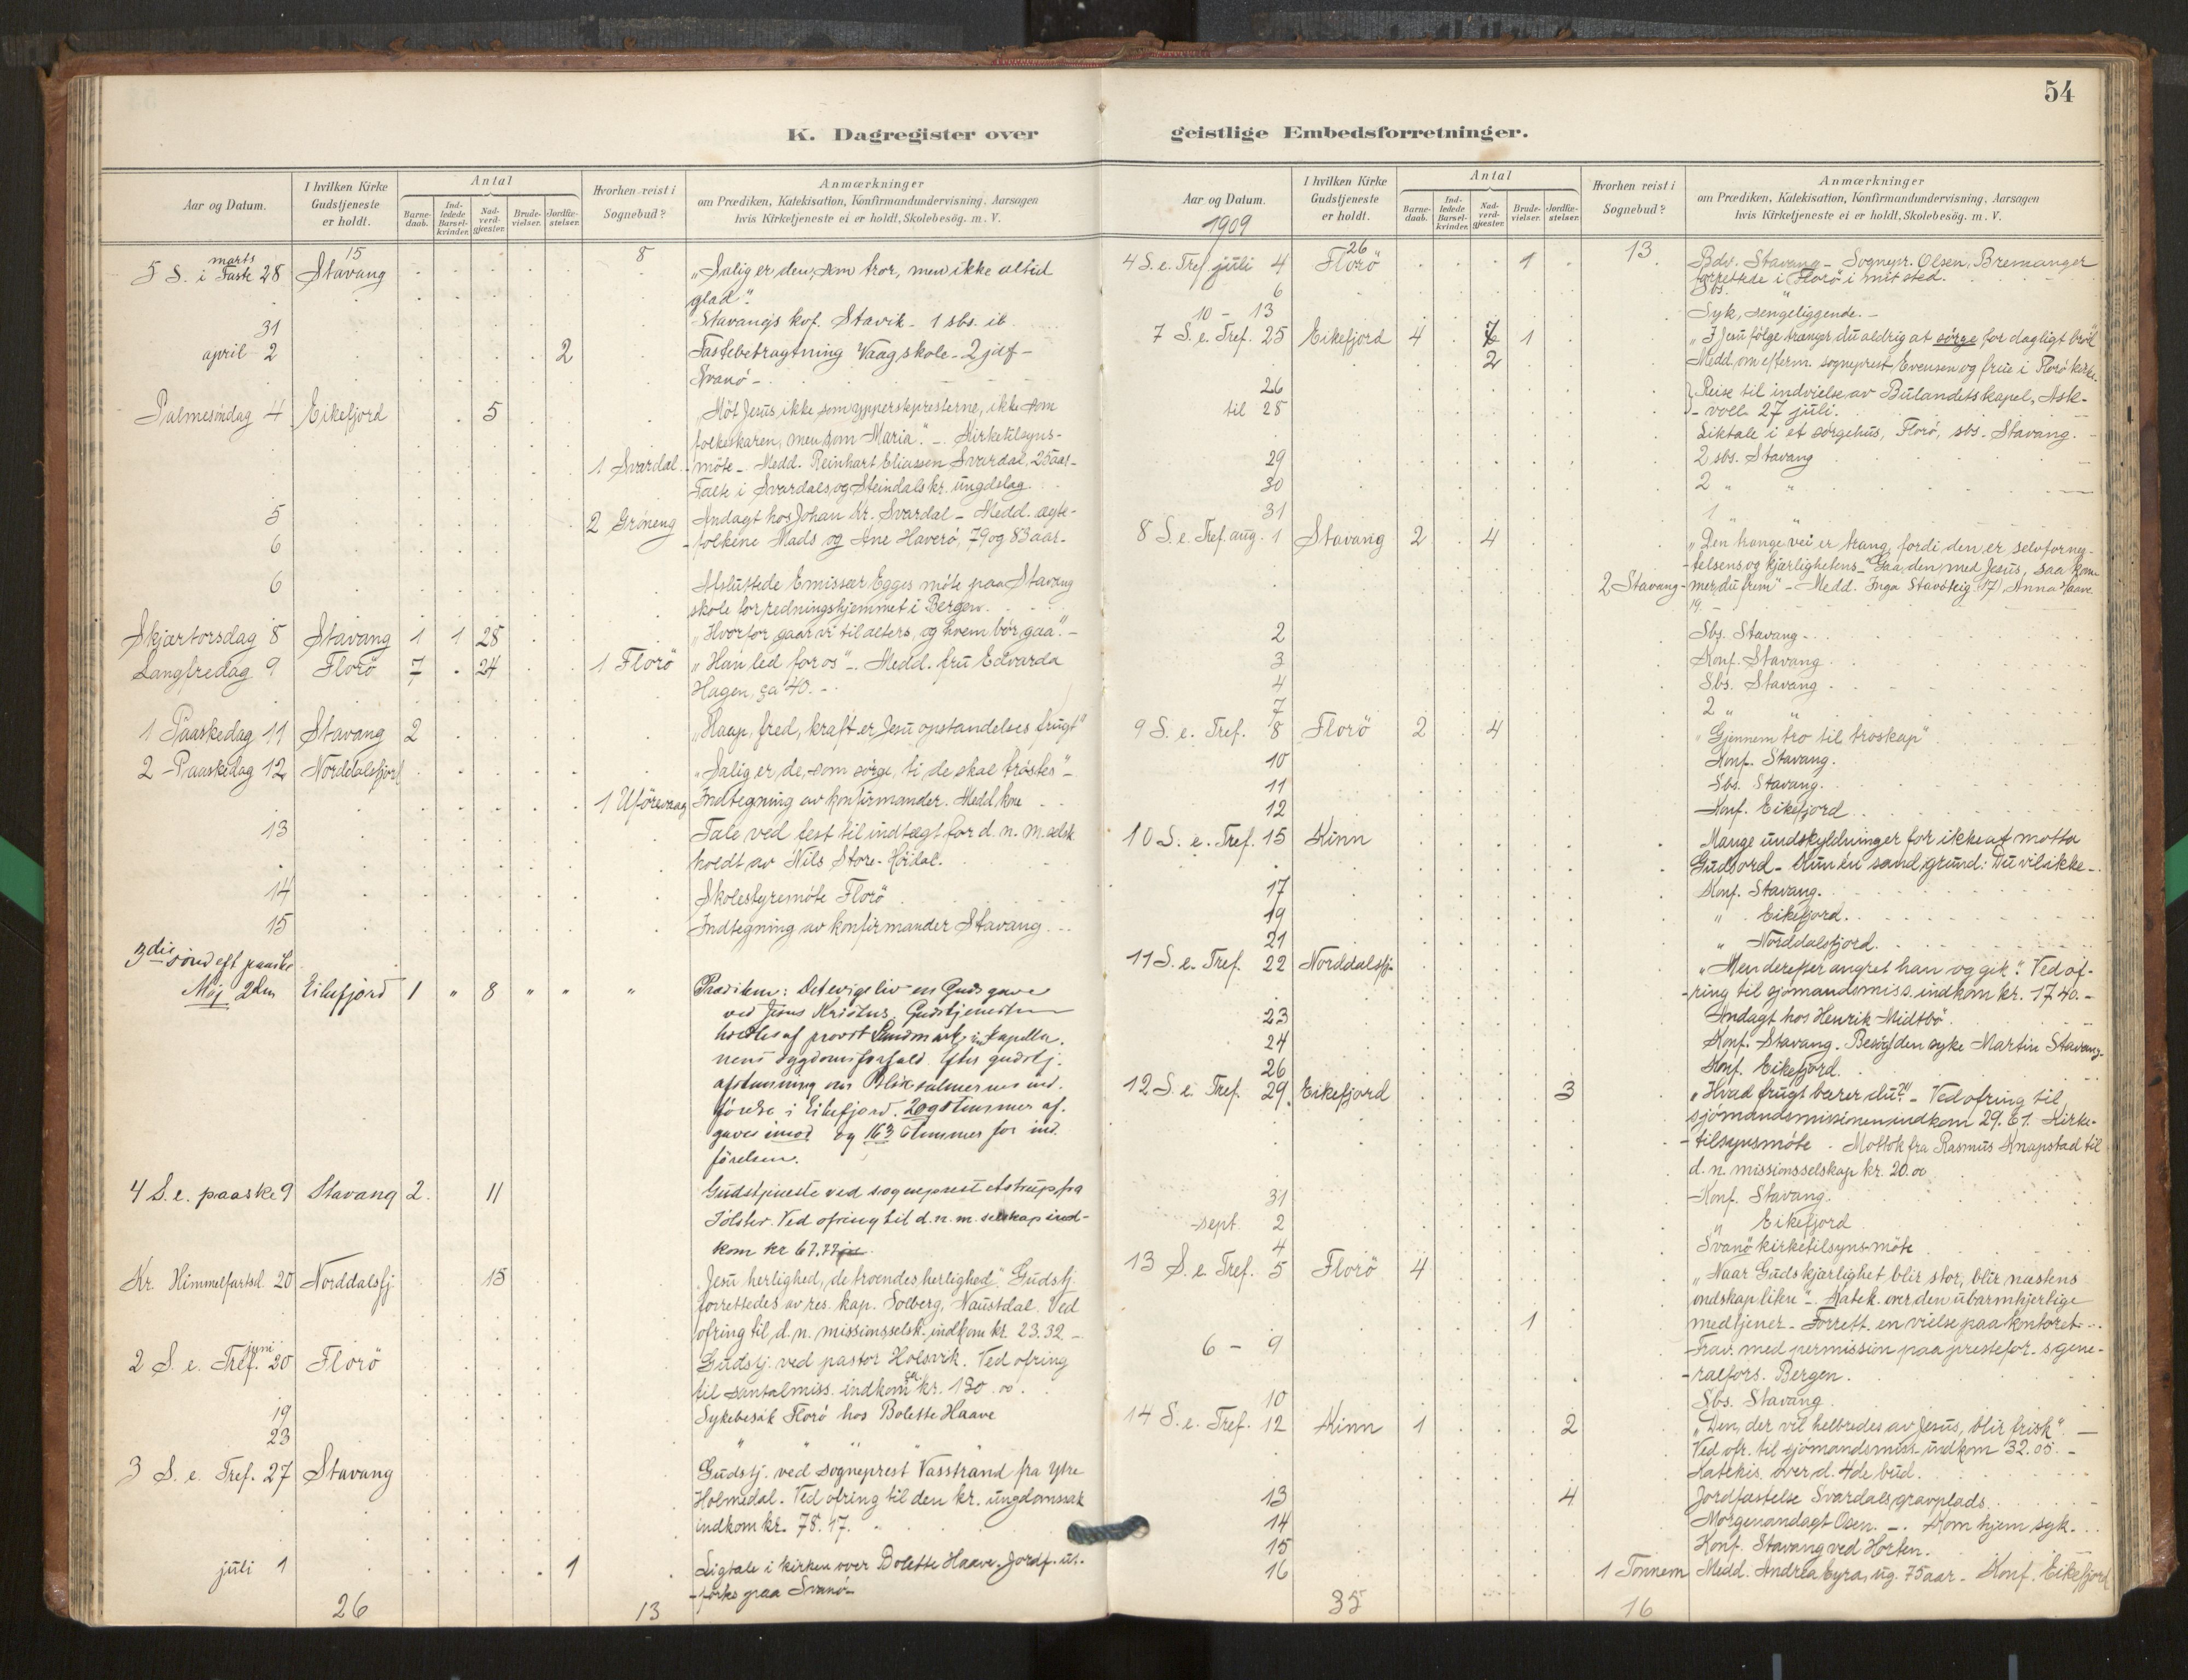 54
K. Dagregister over
Aar og Datum.
I hvilken Kirke Gudstjeneste er holdt.
Antal
Barne-daab.
Ind-ledede Barsel-kvinder.
Nad-verd-gjæster.
Brude-vielser.
Jordfæ-stelser.
Hvorhen reist i Sognebud?
Anmærkninger
om Prædiken, Katekisation, Konfirmandundervisning, Aarsagen
hvis Kirketjeneste ei er holdt, Skolebesög. m. V.
15 8
5 S. i Faste marts 28 Stavang "Salig er den, som tror, men ikke altid
glad".
31 Stavangs kof. Stavik - 1 sbs. ib.
april 2 2 Fastebetragtning Vaag skole - 2 jdf -
Svanö -
Palmesöndag 4 Eikefjord 5 "Möt Jesus, ikke som ypperstepresterne, ikke som
folkeskaren, men som Maria". - Kirketilsyns-
1 Svardal -möte - Medd. Reinhart Eliassen Svardal, 25 aar -
Tale i Svardals og Steindals kr. ungdslag.
5 2 Gröneng Andagt hos Johan Kr. Svardal - Medd. ægte-
6 -folkene Mads og Ane Haverö, 79 og 83 aar -
6 Avsluttede Emissær Egges möte paa Stavang
skole for redningshjemmet i Bergen.
Skjærtorsdag 8 Stavang 1 1 28 "Hvorfor gaar vi til alters, og hvem bör gaa". -
Langfredag 9 Florö 7 24 1 Florö "Han led for os" - Medd. fru Edvarda
Hagen, ca 40. -
1 Paaskedag 11 Stavang 2 "Haap, fred, kraft er Jesu opstandelses frugt"
2 Paaskedag 12 Norddalsfjord "Salig er de, som sörge, ti de skal tröstes" -
1 Uförevaag Indtegning av konfirmander. Medd. kone
13 Tale ved fest til indtægt for d. n. m. selsk.
holdt av Nils Store-Höidal.
14 Skolestyremöte Florö
15 Indtegning av konfirmander Stavang
3die sönd eft paaske
Maj 2den Eikefjord 1 " 8 " " " Prædiken: Det evige liv en Guds gave
ved Jesus Kristus. Gudstjenesten
holdtes af provst Landmark, kapella-
nens sygdomsforfald. Efter gudstj.
afstemning om Blix salmernes ind-
förelse i Eikefjord. 20 stemmer af-
gaves imod og 163 stemmer for ind-
förelsen.
4 S. e. paaske 9 Stavang 2 11 Gudstjeneste ved sogneprest Astrup fra
Jölster. Ved ofring til d. n. m. selskap ind-
kom kr 67.77
Kr. Himmelfartsd. 20 Norddalsfj 15 "Jesu herlighed, de troendes herlighed". Gudstj.
forrettedes av res. kap. Solberg, Naustdal. Ved
ofring til d. n. missionsselsk. indkom kr. 23.32 -
2 S. e. Tref. juni 20 Florö Gudstj. ved pastor Holsvik. Ved ofring
til santalmiss. indkom ca. kr. 130.00.
19 Sykebesök Florö hos Bolette Haave
23 " " " " "
3 S. e. Tref. 27 Stavang Gudstj. ved sogneprest Vasstrand fra Ytre
Holmedal. Ved ofring til den kr. ungdomssak
indkom kr. 78.17.
juli 1 1 Ligtale i kirken over Bolette Haave. Jordf. ut-
-förtes paa Svanö -
26 13
geistlige Embedsforretninger.
Aar og Datum.
I hvilken Kirke Gudstjeneste er holdt.
Antal
Barne-daab.
Ind-ledede Barsel-kvinder.
Nad-verd-gjæster.
Brude-vielser.
Jordfæ-stelser.
Hvorhen reist i Sognebud?
Anmærkninger
om Prædiken, Katekisation, Konfirmandundervisning, Aarsagen
hvis Kirketjeneste ei er holdt, Skolebesög. m. V.
1909
26 13
4 S. e. Tref. juli 4 Florö 1 Bdv. Stavang - Sognepr. Olsen, Bremanger
forrettede i Florö i mit sted.
6 Sbs. "
10 - 13 Syk, sengeliggende. -
7 S. e. Tref. 25 Eikefjord 4 2 1 "I Jesu fölge trænger du aldrig at sörge for dagligt bröd"
2 Medd. om efterm. sogneprest Evensen og frue i Florö kirke.
26 Reise til indvielse av Bulandets kapel, Ask-
til 28 -voll 27 juli.
Liktale i et sörgehus, Florö, sbs. Stavang.
29 2 sbs. Stavang
30 2 " "
31 1 "
8 S. e. Tref. aug. 1 Stavang 2 4 "Den trange vei er trang, fordi den er selvforneg-
telsens og kjærlighetens - Gaa den med Jesus, saa kom-
2 Stavang -mer du frem" - Medd. Inga Stavöteig (17), Anna Haave
19. -
2 Sbs. Stavang -
3 Konf. Stavang
4 Sbs. Stavang
7 2 " "
9 S. e. Tref. 8 Florö 2 4 "Gjennem tro til troskap"
10 Konf. Stavang.
11 Sbs. Stavang.
12 Konf. Eikefjord
10 S. e. Tref. 15 Kinn Mange undskyldninger for ikke at motta
Guds ord - Kun én sand grund: Du vil ikke -
17 Konf. Stavang.
19 " Eikefjord.
21 " Norddalsfjord.
11 S. e. Tref. 22 Norddalsfj. "Men derefter angret han og gik". Ved of-
-ring til sjömandsmiss. indkom kr. 17.40. -
23 Andagt hos Henrik Midtbö
24 Konf. Stavang. Besög den syke Martin Stavang.
26 Konf. Eikefjord.
12 S. e. Tref. 29. Eikefjord 3 "Hvad frugt bærer du?" - Ved ofring til
sjömandsmissionen indkom 29.61. Kirke-
-tilsynsmöte. Mottok fra Rasmus Knapstad til
d. n. missionsselskap kr. 20.00
31 Konf. Stavang.
sept. 2 " Eikefjord
4 Svanö kirketilsynsmöte
13 S. e. Tref. 5 Florö 4 "Naar Guds kjærlighet blir stor, blir næstens
ondskap liten" - Katek. over den ubarmhjertige
1 medtjener - Forrett. en vielse paa kontoret -
6 - 9 Frav. med permission paa prestefor.s gene-
-ralfors. Bergen.
10 Sbs. Stavang
14 S. e. Tref. 12 Kinn 1 2 "Den, der vil helbredes av Jesus, blir frisk". -
Ved ofr. til sjömandsmiss. indkom 32.05 -
Katekis. over d. 4de bud.
13 4 Jordfæstelse Svardals gravplads
14 Morgenandagt Osen - Kom hjem syk.
15 Konf. Stavang ved Horten.
16 1 Tonnem Medd. Andrea Eyra, ug. 75 aar - Konf. Eikefjord
35 16